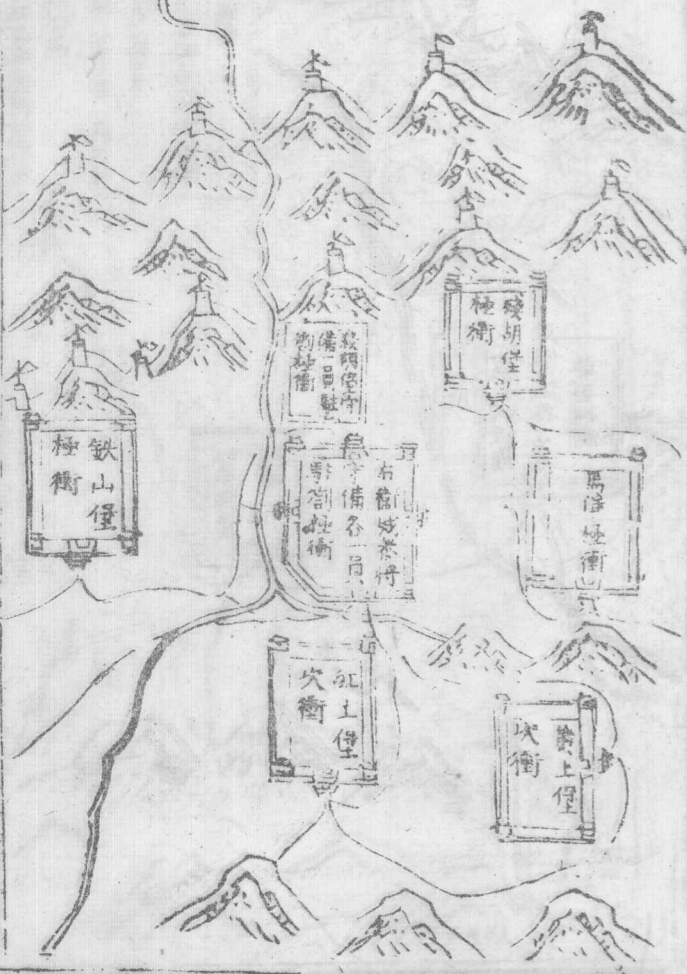 殘胡堡
極衝
殺胡堡守
備一員駐
劄極衝
馬營極衝
右衛城叅將
守備各一員
駐劄極衝
鉄山堡
極衝
紅土堡
次衝
黃土堡
次衝